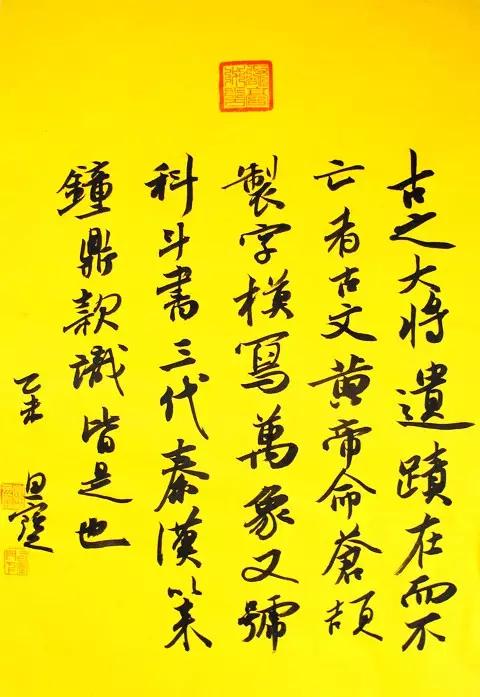 古之大将遺蹟在而不
亡者古文黄帝命蒼頡
製字模寫萬象又號
科斗書三代秦漢以来
鐘鼎款識皆是也
乙未